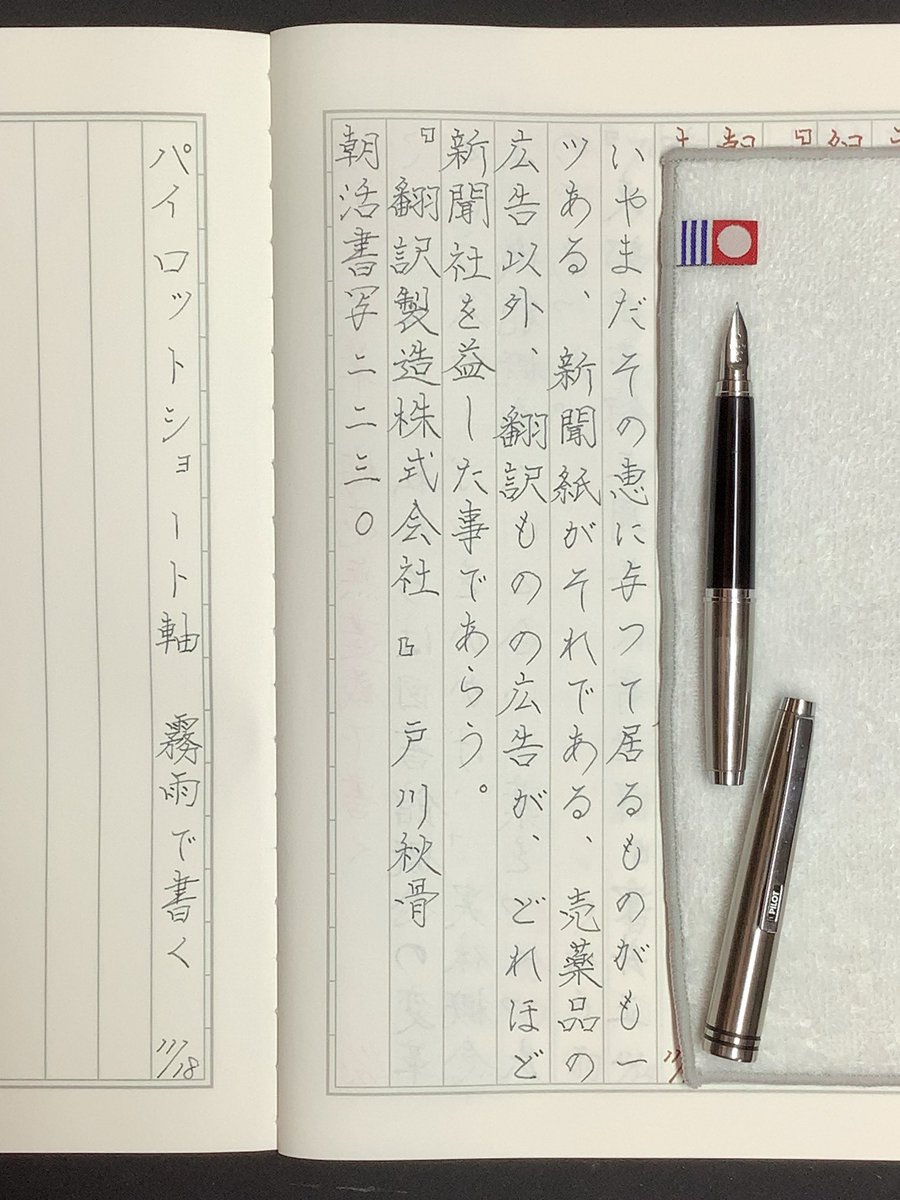 いやまだその恵に与つて居るものがも一
ツある、新聞紙がそれである、売薬品の
広告以外、翻訳ものの広告が、どれほど
新聞社を益した事であらう。
『翻訳製造株式会社』戸川秋骨
朝活書写二二三〇
パイロットショート軸 霧雨で書く
11/18
PILOT